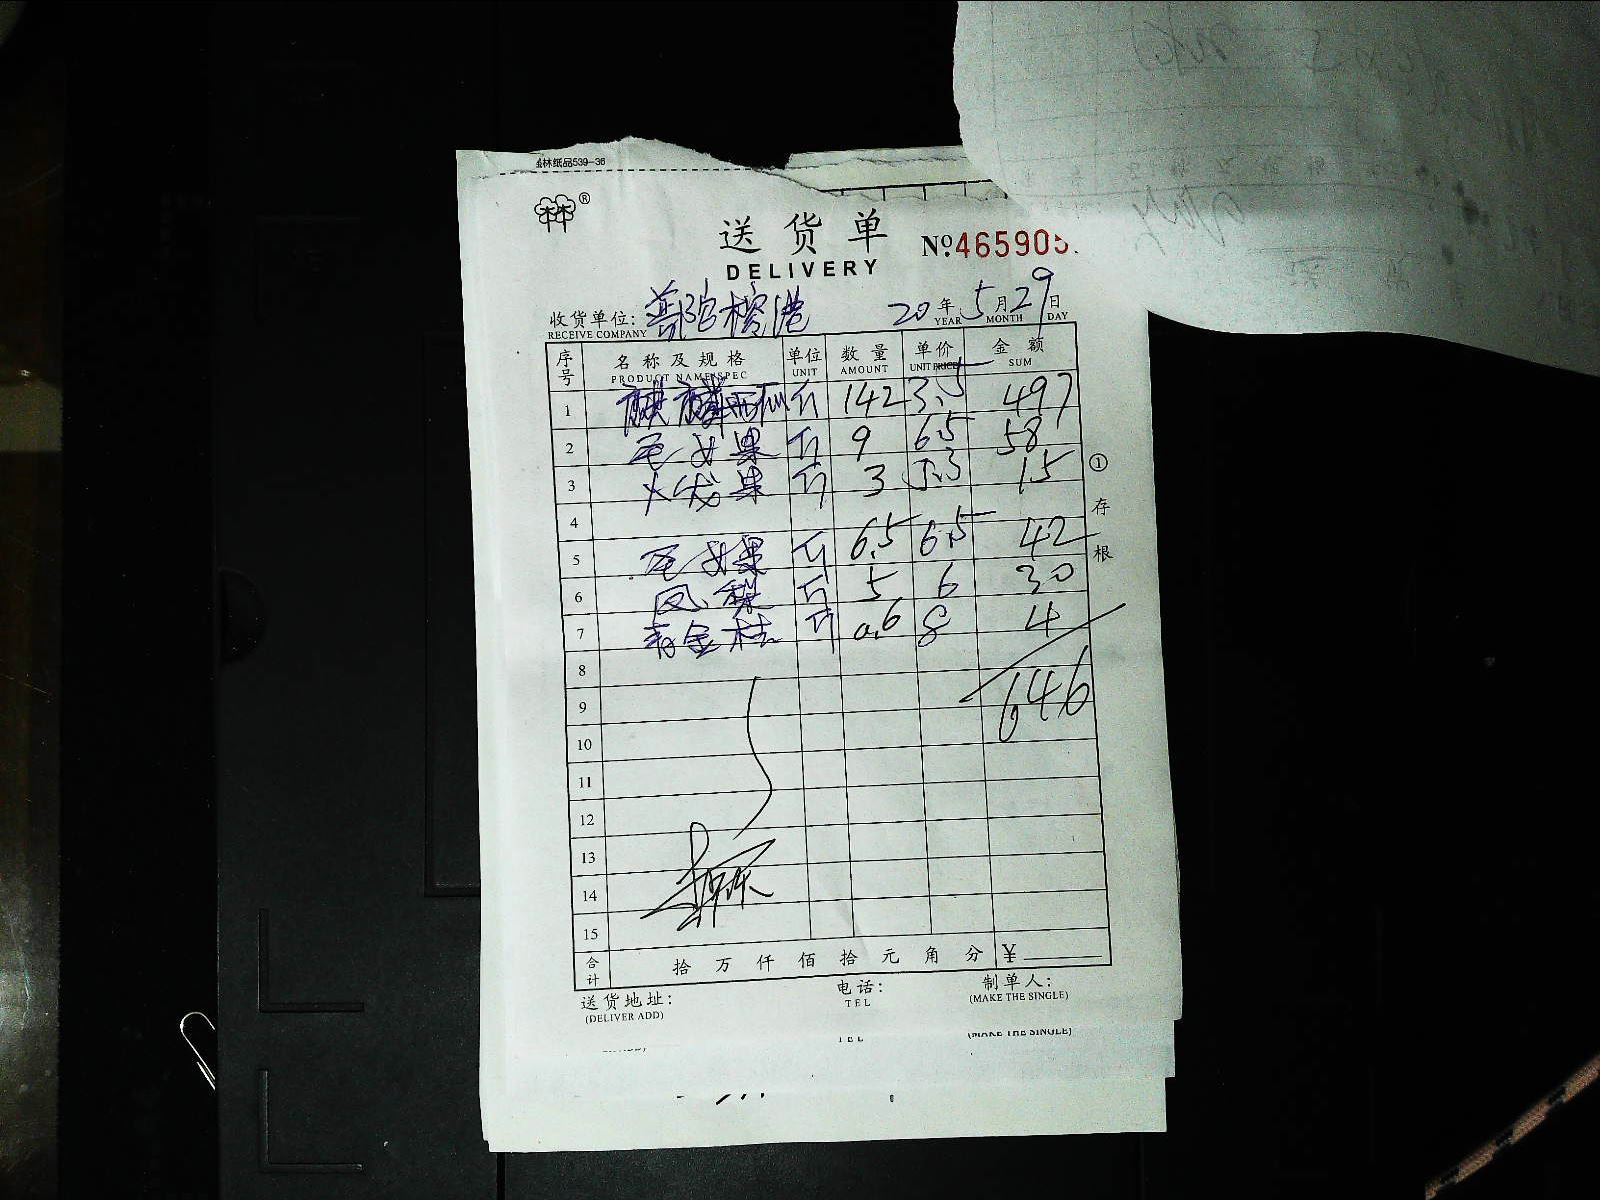 林纸品539-36
林林®
送货单
№:465905
DELIVERY
收货单位: 普陀 20年5月29日
RECEIVE COMPANY YEAR MONTH DAY
序号 名称及规格 单位 数量 单价 金额
PRODUCT NAME/SPEC UNIT AMOUNT UNIT PRICE SUM
1 麒麟西瓜 斤 142 3.5 497
2 毛女果 斤 9 6.5 58
3 火龙果 斤 3 5.3 15
4
5 毛女果 斤 6.5 6.5 42
6 凤梨 斤 5 6 30
7 青金桔 斤 0.6 8 4
8
9 646
10
11
12
13
14
15
合计 拾万仟佰拾元角分 ¥
① 存根
送货地址: 电话: 制单人:
(DELIVER ADD) TEL (MAKE THE SINGLE)
TEL (MAKE THE SINGLE)